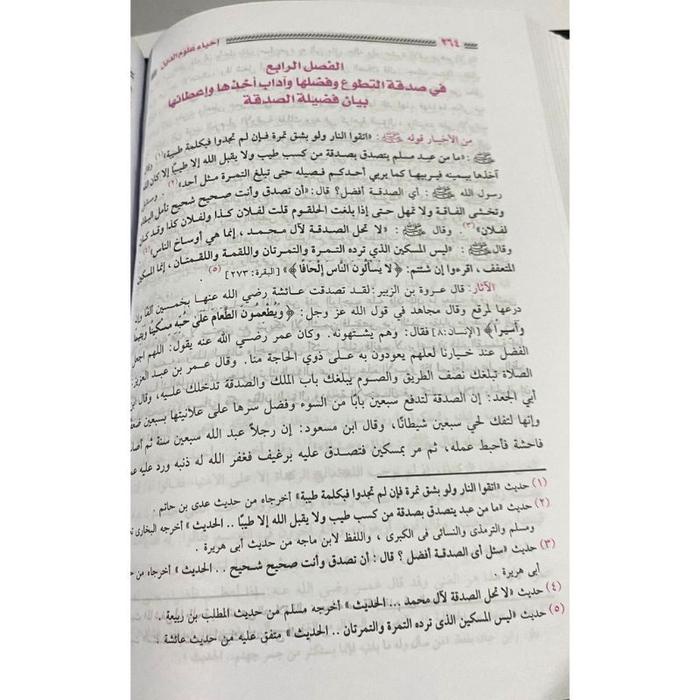 ٢٦٤
إحياء علوم الدين
الفصل الرابع
في صدقة التطوع وفضلها وآداب أخذها وإعطائها
بيان فضيلة الصدقة
من الأخبار قوله ﷺ: «اتقوا النار ولو بشق تمرة فإن لم تجدوا فبكلمة طيبة» (١) وقال
ﷺ: «ما من عبد مسلم يتصدق بصدقة من كسب طيب ولا يقبل الله إلا طيبًا إلا كان الله
آخذها بيمينه فيربيها كما يربى أحدكم فصيله حتى تبلغ التمرة مثل أحد» (٢) وسئل
رسول الله ﷺ: أي الصدقة أفضل؟ قال: «أن تصدق وأنت صحيح شحيح تأمل البقاء
وتخشى الفاقة ولا تمهل حتى إذا بلغت الحلقوم قلت لفلان كذا ولفلان كذا وقد كان
لفلان» (٣) وقال ﷺ: «لا تحل الصدقة لآل محمد، إنما هي أوساخ الناس» (٤)
وقال ﷺ: «ليس المسكين الذي ترده التمرة والتمرتان واللقمة واللقمتان، إنما المسكين
المتعفف، اقرءوا إن شئتم: ﴿لا يَسألونَ النَّاسَ إلْحَافًا﴾» [البقرة: ٢٧٣] (٥)
الآثار: قال عروة بن الزبير: لقد تصدقت عائشة رضي الله عنها بخمسين ألفًا وإن
درعها لمرقع وقال مجاهد في قول الله عز وجل: ﴿وَيُطْعِمُونَ الطَّعَامَ عَلَىٰ حُبِّهِ مِسْكِينًا وَيَتِيمًا
وَأَسِيرًا﴾ [الإنسان: ٨] فقال: وهم يشتهونه. وكان عمر رضي الله عنه يقول: اللهم اجعل
الفضل عند خيارنا لعلهم يعودون به على ذوي الحاجة منا. وقال عمر بن عبد العزيز:
الصلاة تبلغك نصف الطريق والصوم يبلغك باب الملك والصدقة تدخلك عليه، وقال ابن
أبي الجعد: إن الصدقة لتدفع سبعين بابًا من السوء وفضل سرها على علانيتها بسبعين ضعفًا
وإنها لتفك لحي سبعين شيطانًا، وقال ابن مسعود: إن رجلاً عبد الله سبعين سنة ثم أصاب
فاحشة فأحبط عمله، ثم مر بمسكين فتصدق عليه برغيف فغفر الله له ذنبه ورد عليه
(١) حديث «اتقوا النار ولو بشق تمرة فإن لم تجدوا فبكلمة طيبة» أخرجاه من حديث عدى بن حاتم.
(٢) حديث «ما من عبد يتصدق بصدقة من كسب طيب ولا يقبل الله إلا طيبًا .. الحديث» أخرجه البخارى
ومسلم والترمذى والنسائى فى الكبرى، واللفظ لابن ماجه من حديث أبى هريرة.
(٣) حديث «سئل أى الصدقة أفضل؟ قال: أن تصدق وأنت صحيح شحيح .. الحديث» أخرجاه من
أبى هريرة.
(٤) حديث «لا تحل الصدقة لآل محمد ... الحديث» أخرجه مسلم من حديث المطلب بن ربيعة.
(٥) حديث «ليس المسكين الذى ترده التمرة والتمرتان .. الحديث» متفق عليه من حديث عائشة.